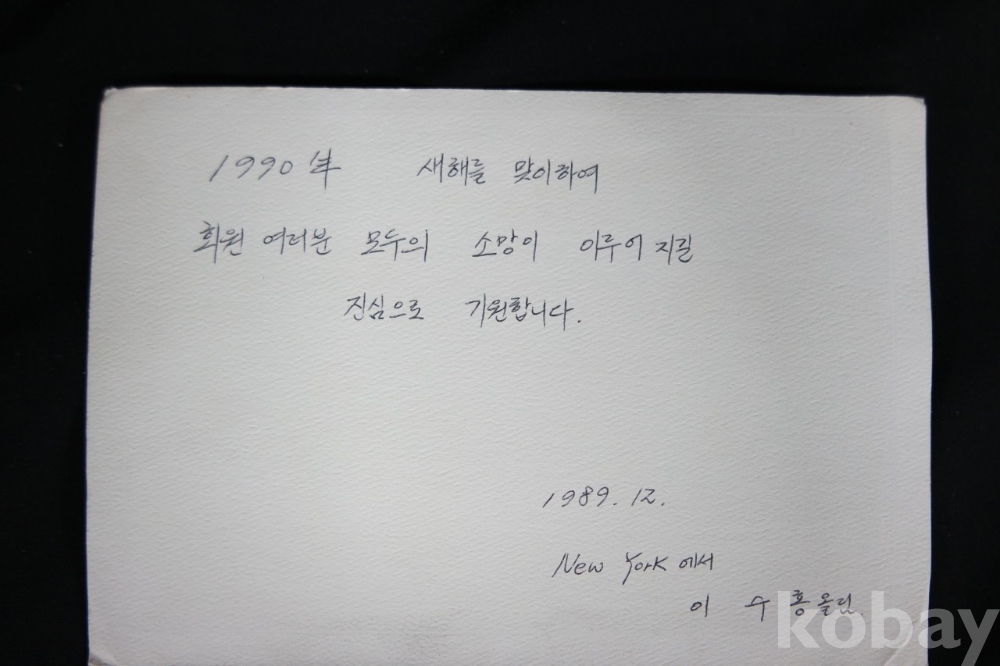 1990年 새해를 맞이하여
회원 여러분 모두의 소망이 이루어 지길
진심으로 기원합니다.
1989. 12.
New York 에서
이 수 홍 올림.
kobay